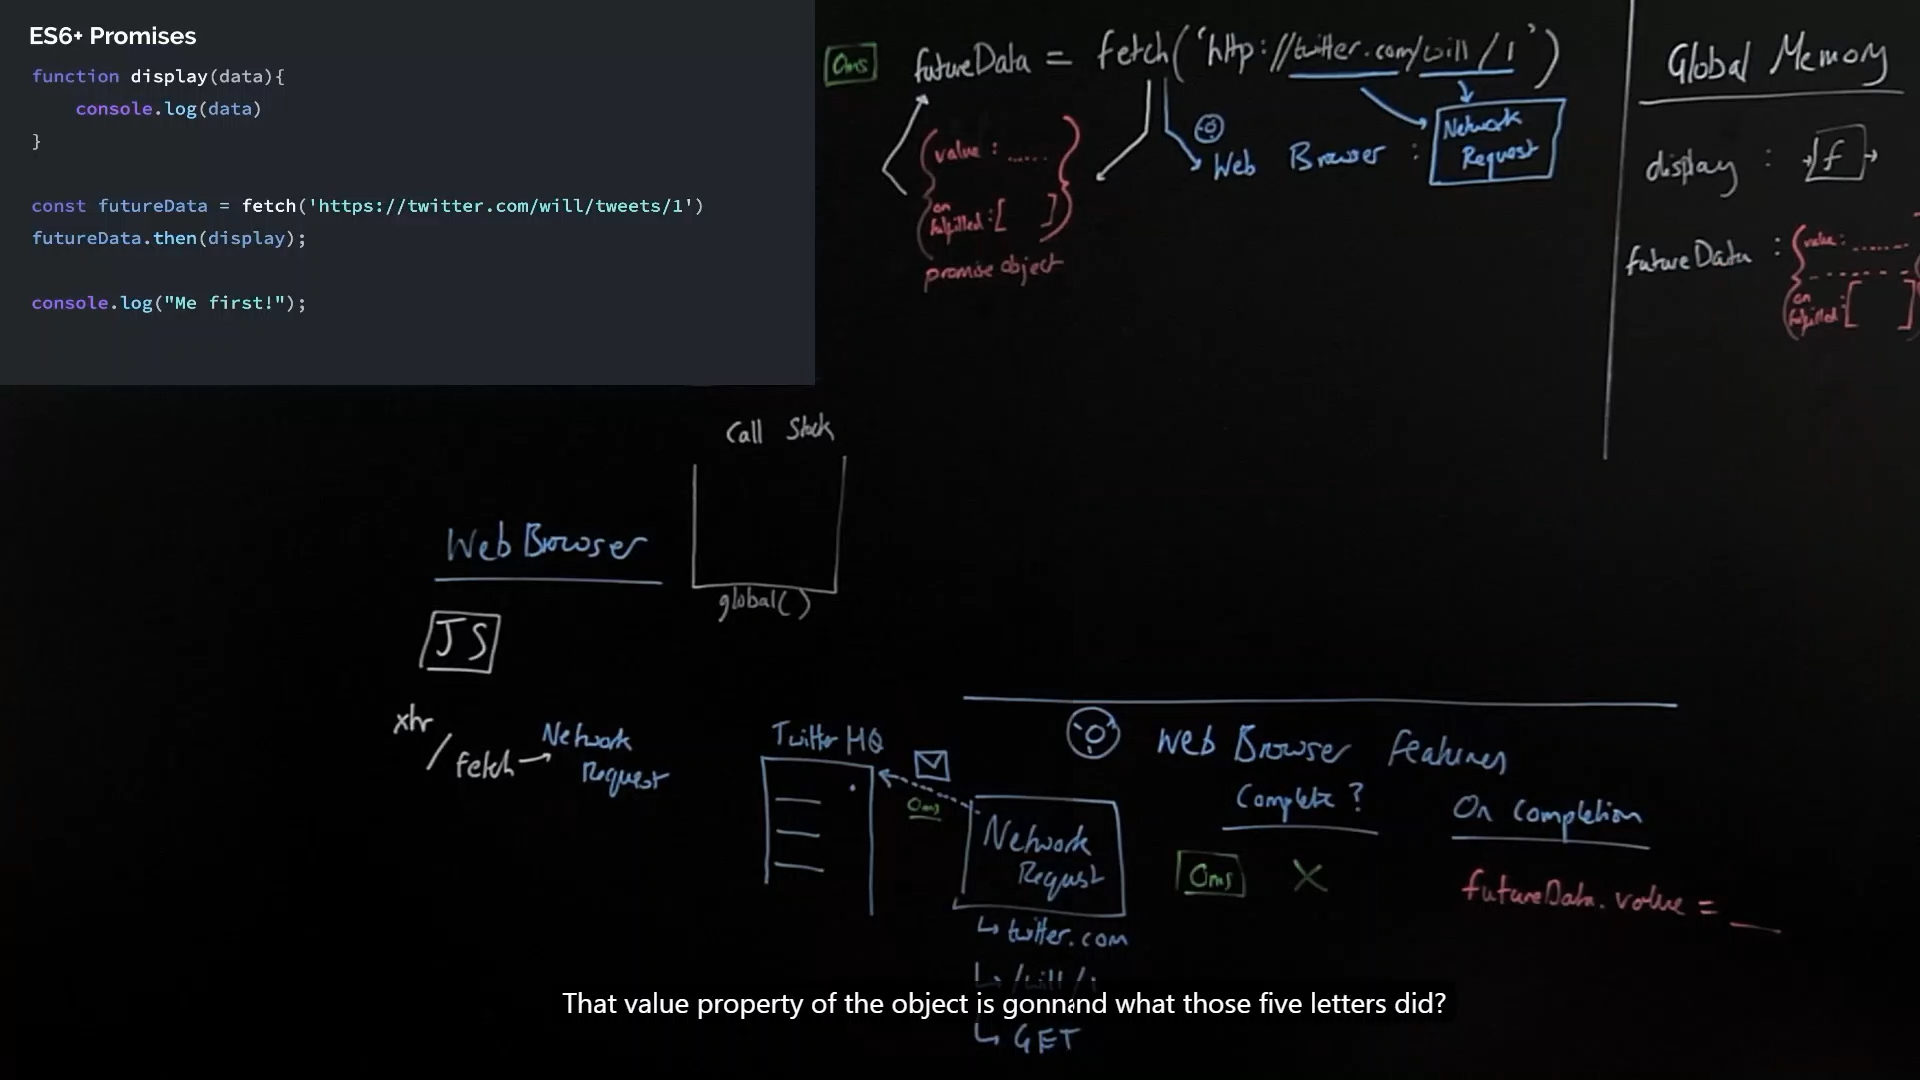 ES6+ Promises
function display(data){
console.log(data)
}
const futureData = fetch('https://twitter.com/will/tweets/1')
futureData.then(display);
console.log("Me first!");
0ms futureData = fetch('http://twitter.com/will/1')
{value : ......
on
fulfilled : [ ] }
promise object
Web Browser :
Network
Request
Global Memory
display : f
futureData : { value : .......
on
fulfilled : [ ]
Call Stack
global()
Web Browser
JS
xhr
/ fetch → Network
Request
Twitter HQ
0ms
Network
Request
↳ twitter.com
↳ /will/1
↳ GET
Web Browser features
Complete ?
0ms X
On Completion
futureData.value = __
That value property of the object is gonnand what those five letters did?